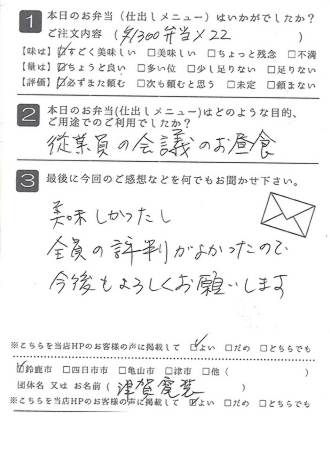 1 本日のお弁当(仕出しメニュー)はいかがでしたか?
ご注文内容 ( ¥1300弁当×22 )
【味は】☑すごく美味しい □美味しい □ちょっと残念 □不満
【量は】☑ちょうど良い □多い位 □少し足りない □足りない
【評価】☑必ずまた頼む □次も頼むと思う □未定 □頼まない
2 本日のお弁当(仕出しメニュー)はどのような目的、
ご用途でのご利用でしたか?
従業員の会議のお昼食
3 最後に今回のご感想などを何でもお聞かせ下さい。
美味しかったし
全員の評判がよかったので
今後もよろしくお願いします
※こちらを当店HPのお客様の声に掲載して ☑よい □だめ □どちらでも
☑鈴鹿市 □四日市市 □亀山市 □津市 □他 ( )
団体名 又は お名前 ( 津賀電装 )
※こちらを当店HPのお客様の声に掲載して ☑よい □だめ □どちらでも